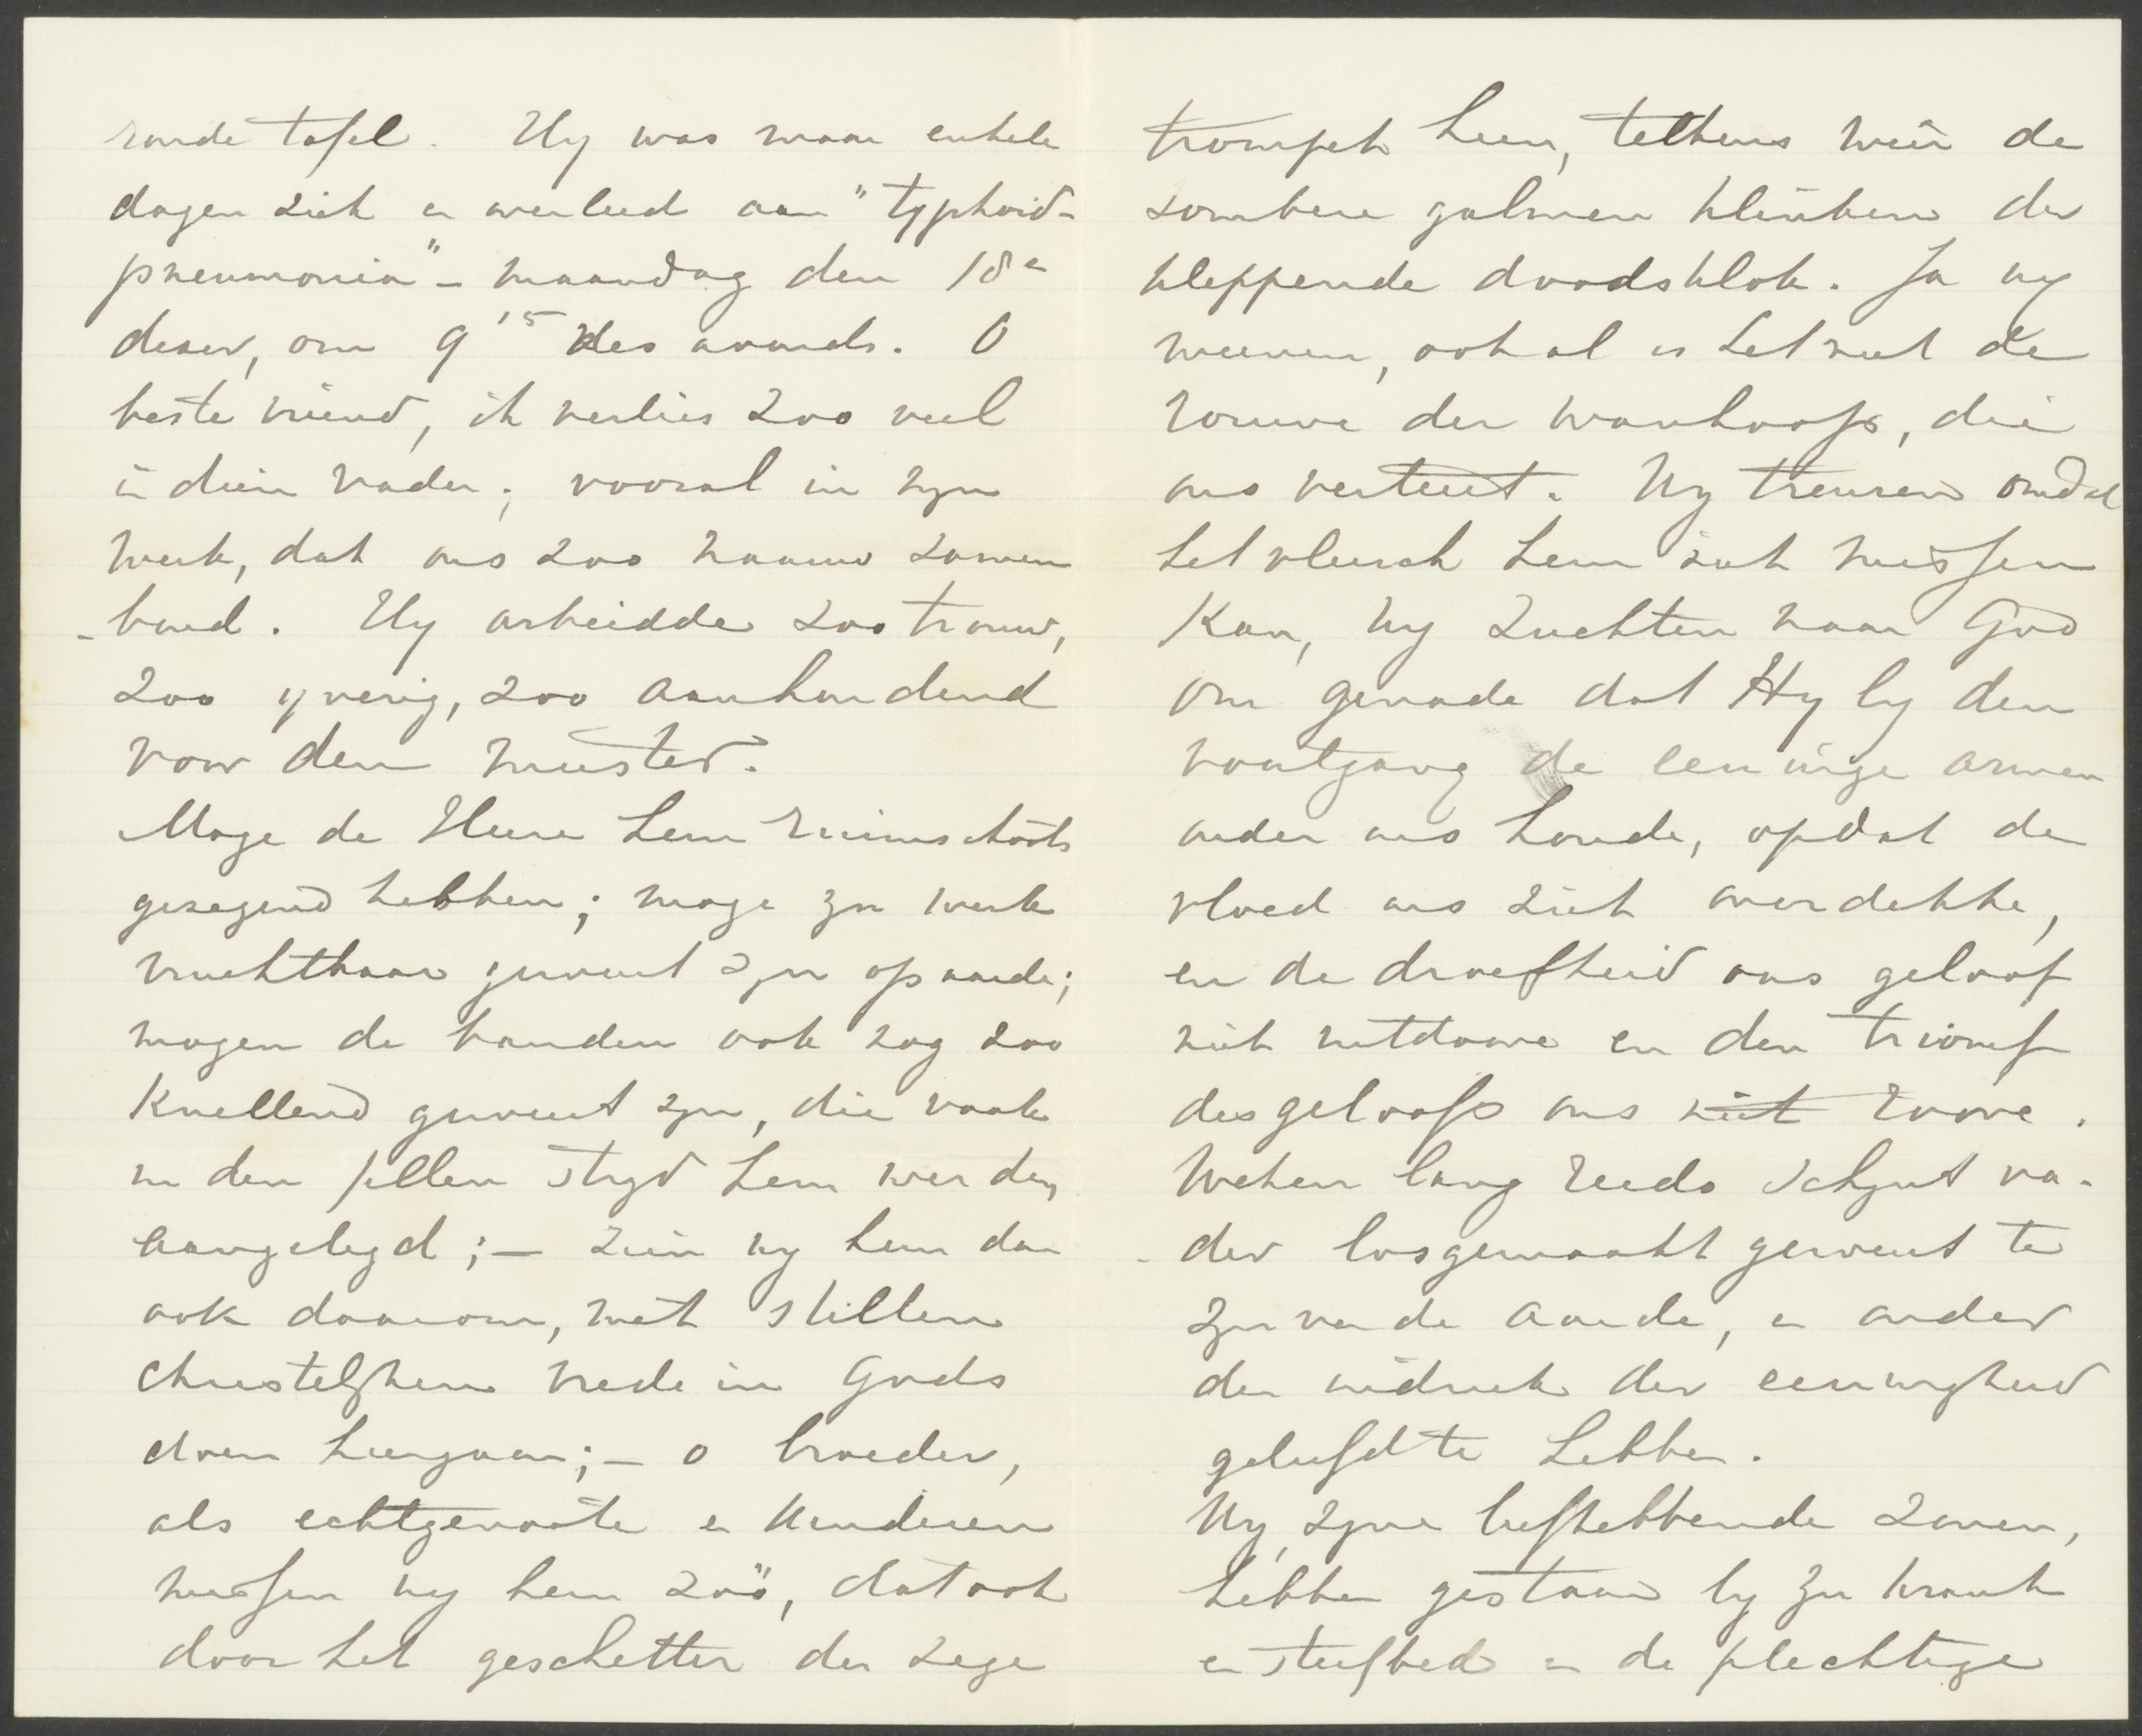 ronde tafel. Hy was maar enkele
dagen ziek en overleed aan "typhoid-
pneumonia" - maandag den 18e
dezer, om 9 15 des avonds. O
beste vriend, ik verlies zoo veel
in dien vader; vooral in zyn
werk, dat ons zoo naauw samen
-bond. Hy arbeidde zoo trouw,
zoo yverig, zoo aanhoudend
voor den meester.
Moge de Heere hem ruimschoots
gezegend hebben; moge zyn werk
vruchtbaar geweest zyn op aarde;
mogen de banden ook nog zoo
knellend geweest zyn, die vaak
in den fellen stryd hem werden
aangelegd; — zien wy hem dan
ook daarom, met stillen
christelyken vrede in Gods
doen heengaan; — o broeder,
als echtgenoote en kinderen
missen wy hem zoo, dat ook
door het geschetter der zege
trompet heen, telkens weer de
sombere galmen klinken der
kleppende doodsklok. Ja wy
weenen, ook al is het niet de
rouwe der wanhoop, die
ons verteert. Wy treuren omdat
het vleesch hem niet missen
kan, wy zuchten naar God
om genade dat Hy by den
voortgang de eeuwige armen
onder ons houde, opdat de
vloed ons niet overdekke,
en de droefheid ons geloof
niet uitdoove en den triomf
des geloofs ons niet roove.
Weken lang reeds schynt va-
der losgemaakt geweest te
zyn van de aarde, en onder
den indruk der eeuwigheid
geleefd te hebben.
Wy, zyne liefhebbende zonen,
hebben gestaan by zyn krank
en sterfbed en de plechtige